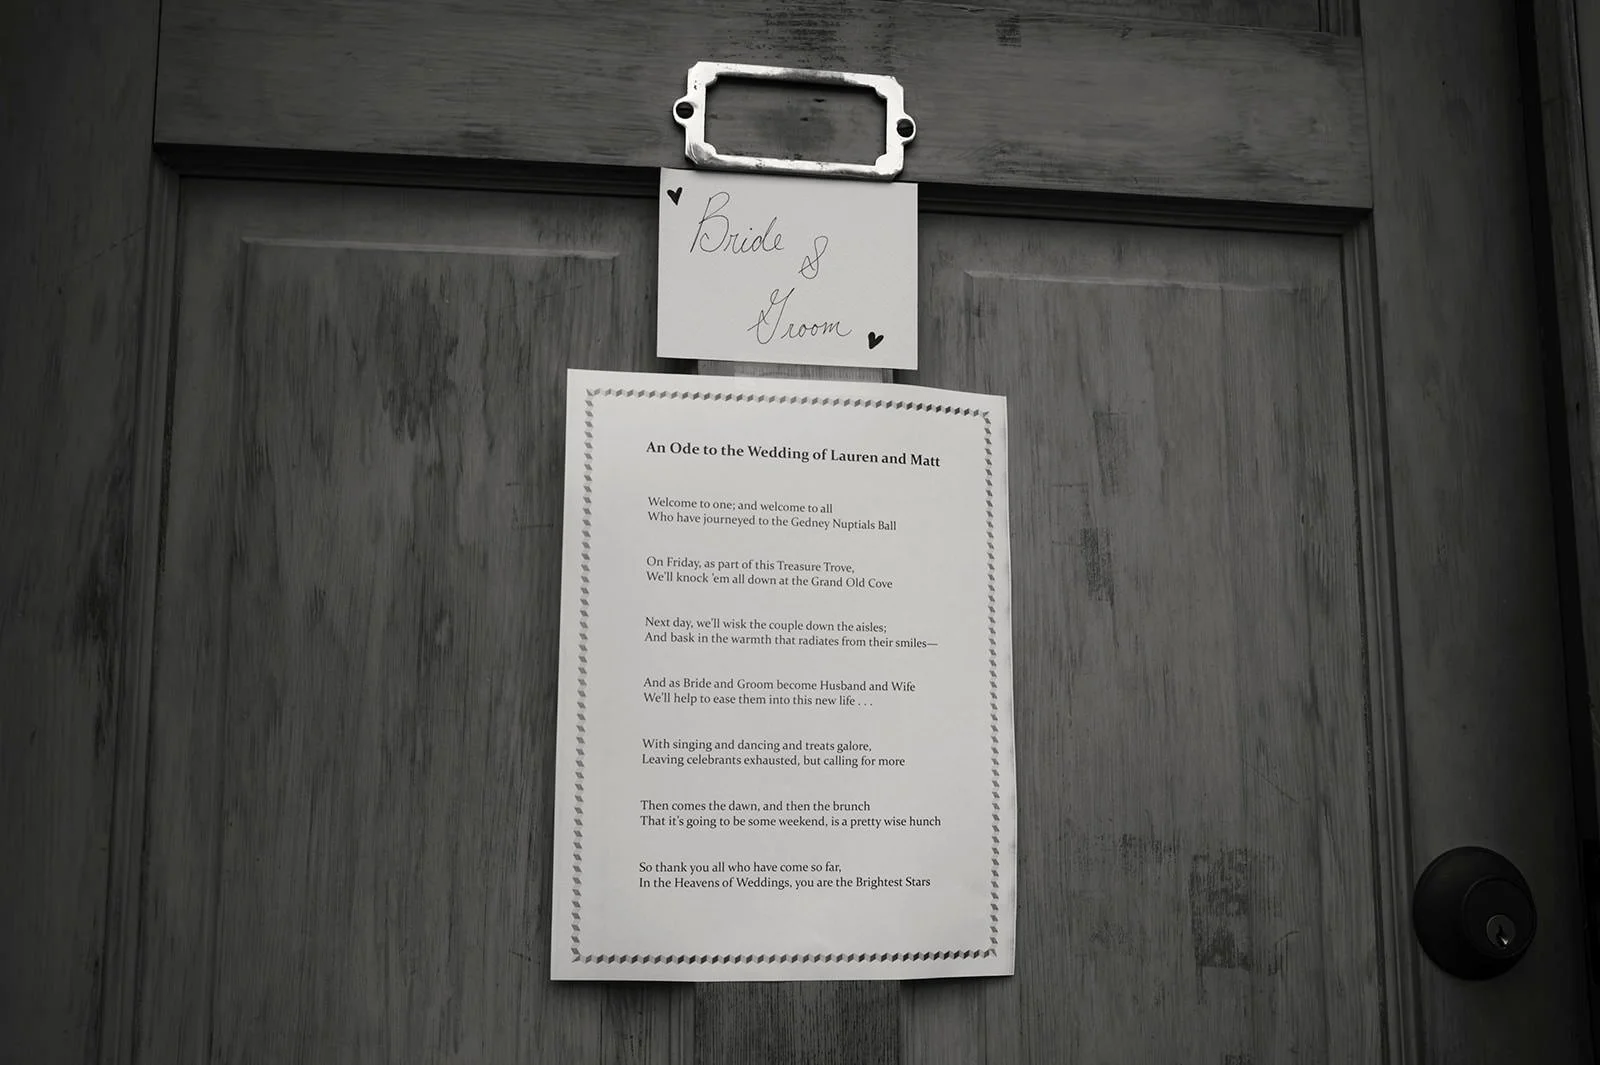 Bride &
Groom
An Ode to the Wedding of Lauren and Matt
Welcome to one; and welcome to all
Who have journeyed to the Gedney Nuptials Ball
On Friday, as part of this Treasure Trove,
We'll knock 'em all down at the Grand Old Cove
Next day, we'll wisk the couple down the aisles;
And bask in the warmth that radiates from their smiles—
And as Bride and Groom become Husband and Wife
We'll help to ease them into this new life . . .
With singing and dancing and treats galore,
Leaving celebrants exhausted, but calling for more
Then comes the dawn, and then the brunch
That it's going to be some weekend, is a pretty wise hunch
So thank you all who have come so far,
In the Heavens of Weddings, you are the Brightest Stars